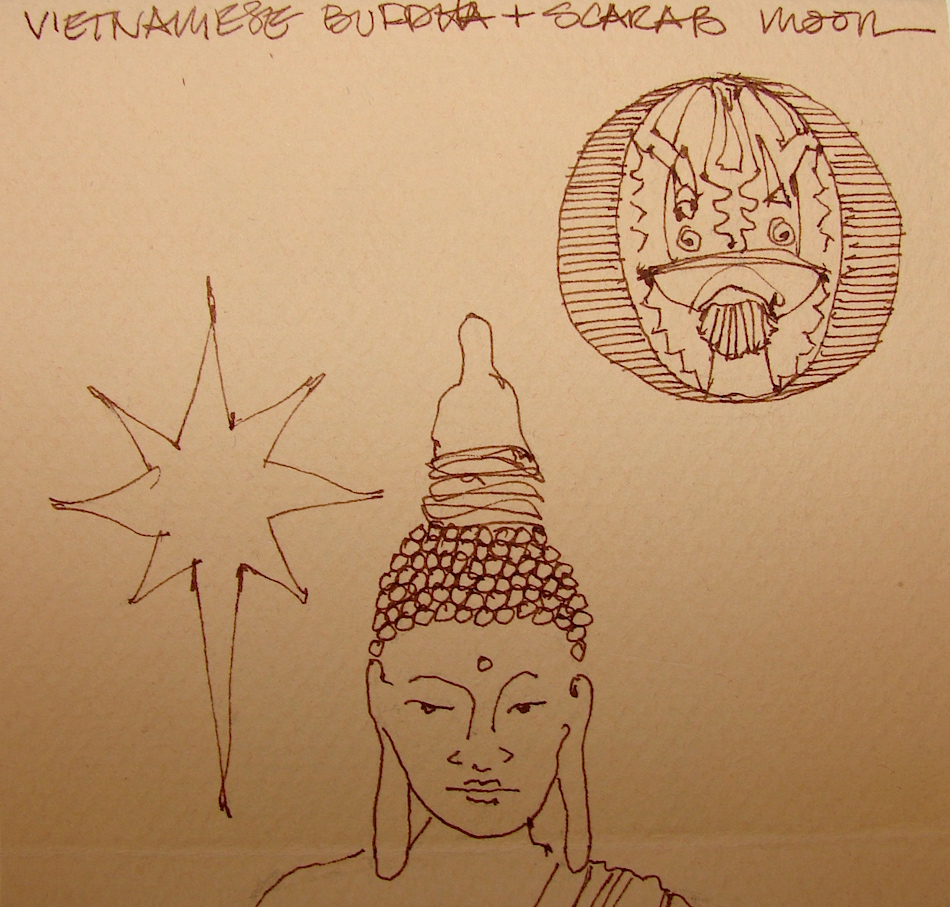 VIETNAMESE BUDDHA + SCARAB MOON